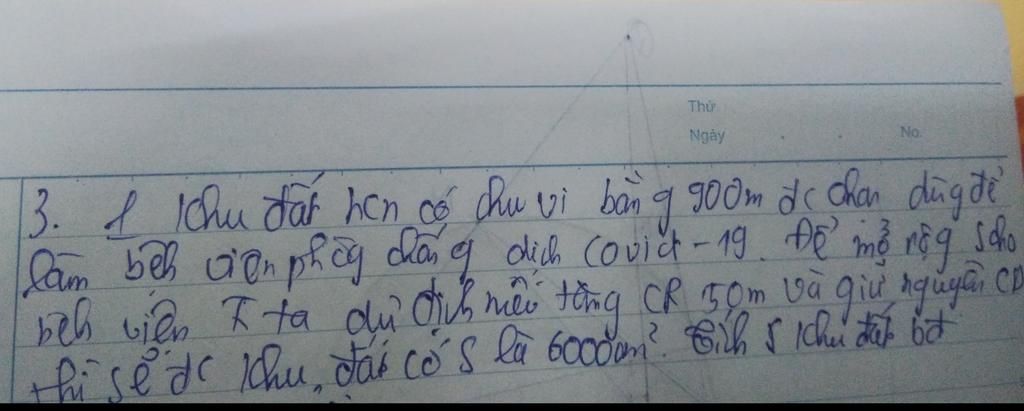 Thứ
Ngày No.
3. 1 khu đất hcn có chu vi bằng 900m đc chọn dùng để
làm bệh viện phòg chống dịch Covid-19. Để mở rộg S cho
bệh viện ta dự địh nếu tăng CR 50m và giữ nguyên CD
thì sẽ đc khu đất có S là 60000m². Tíh S khu đất bđ